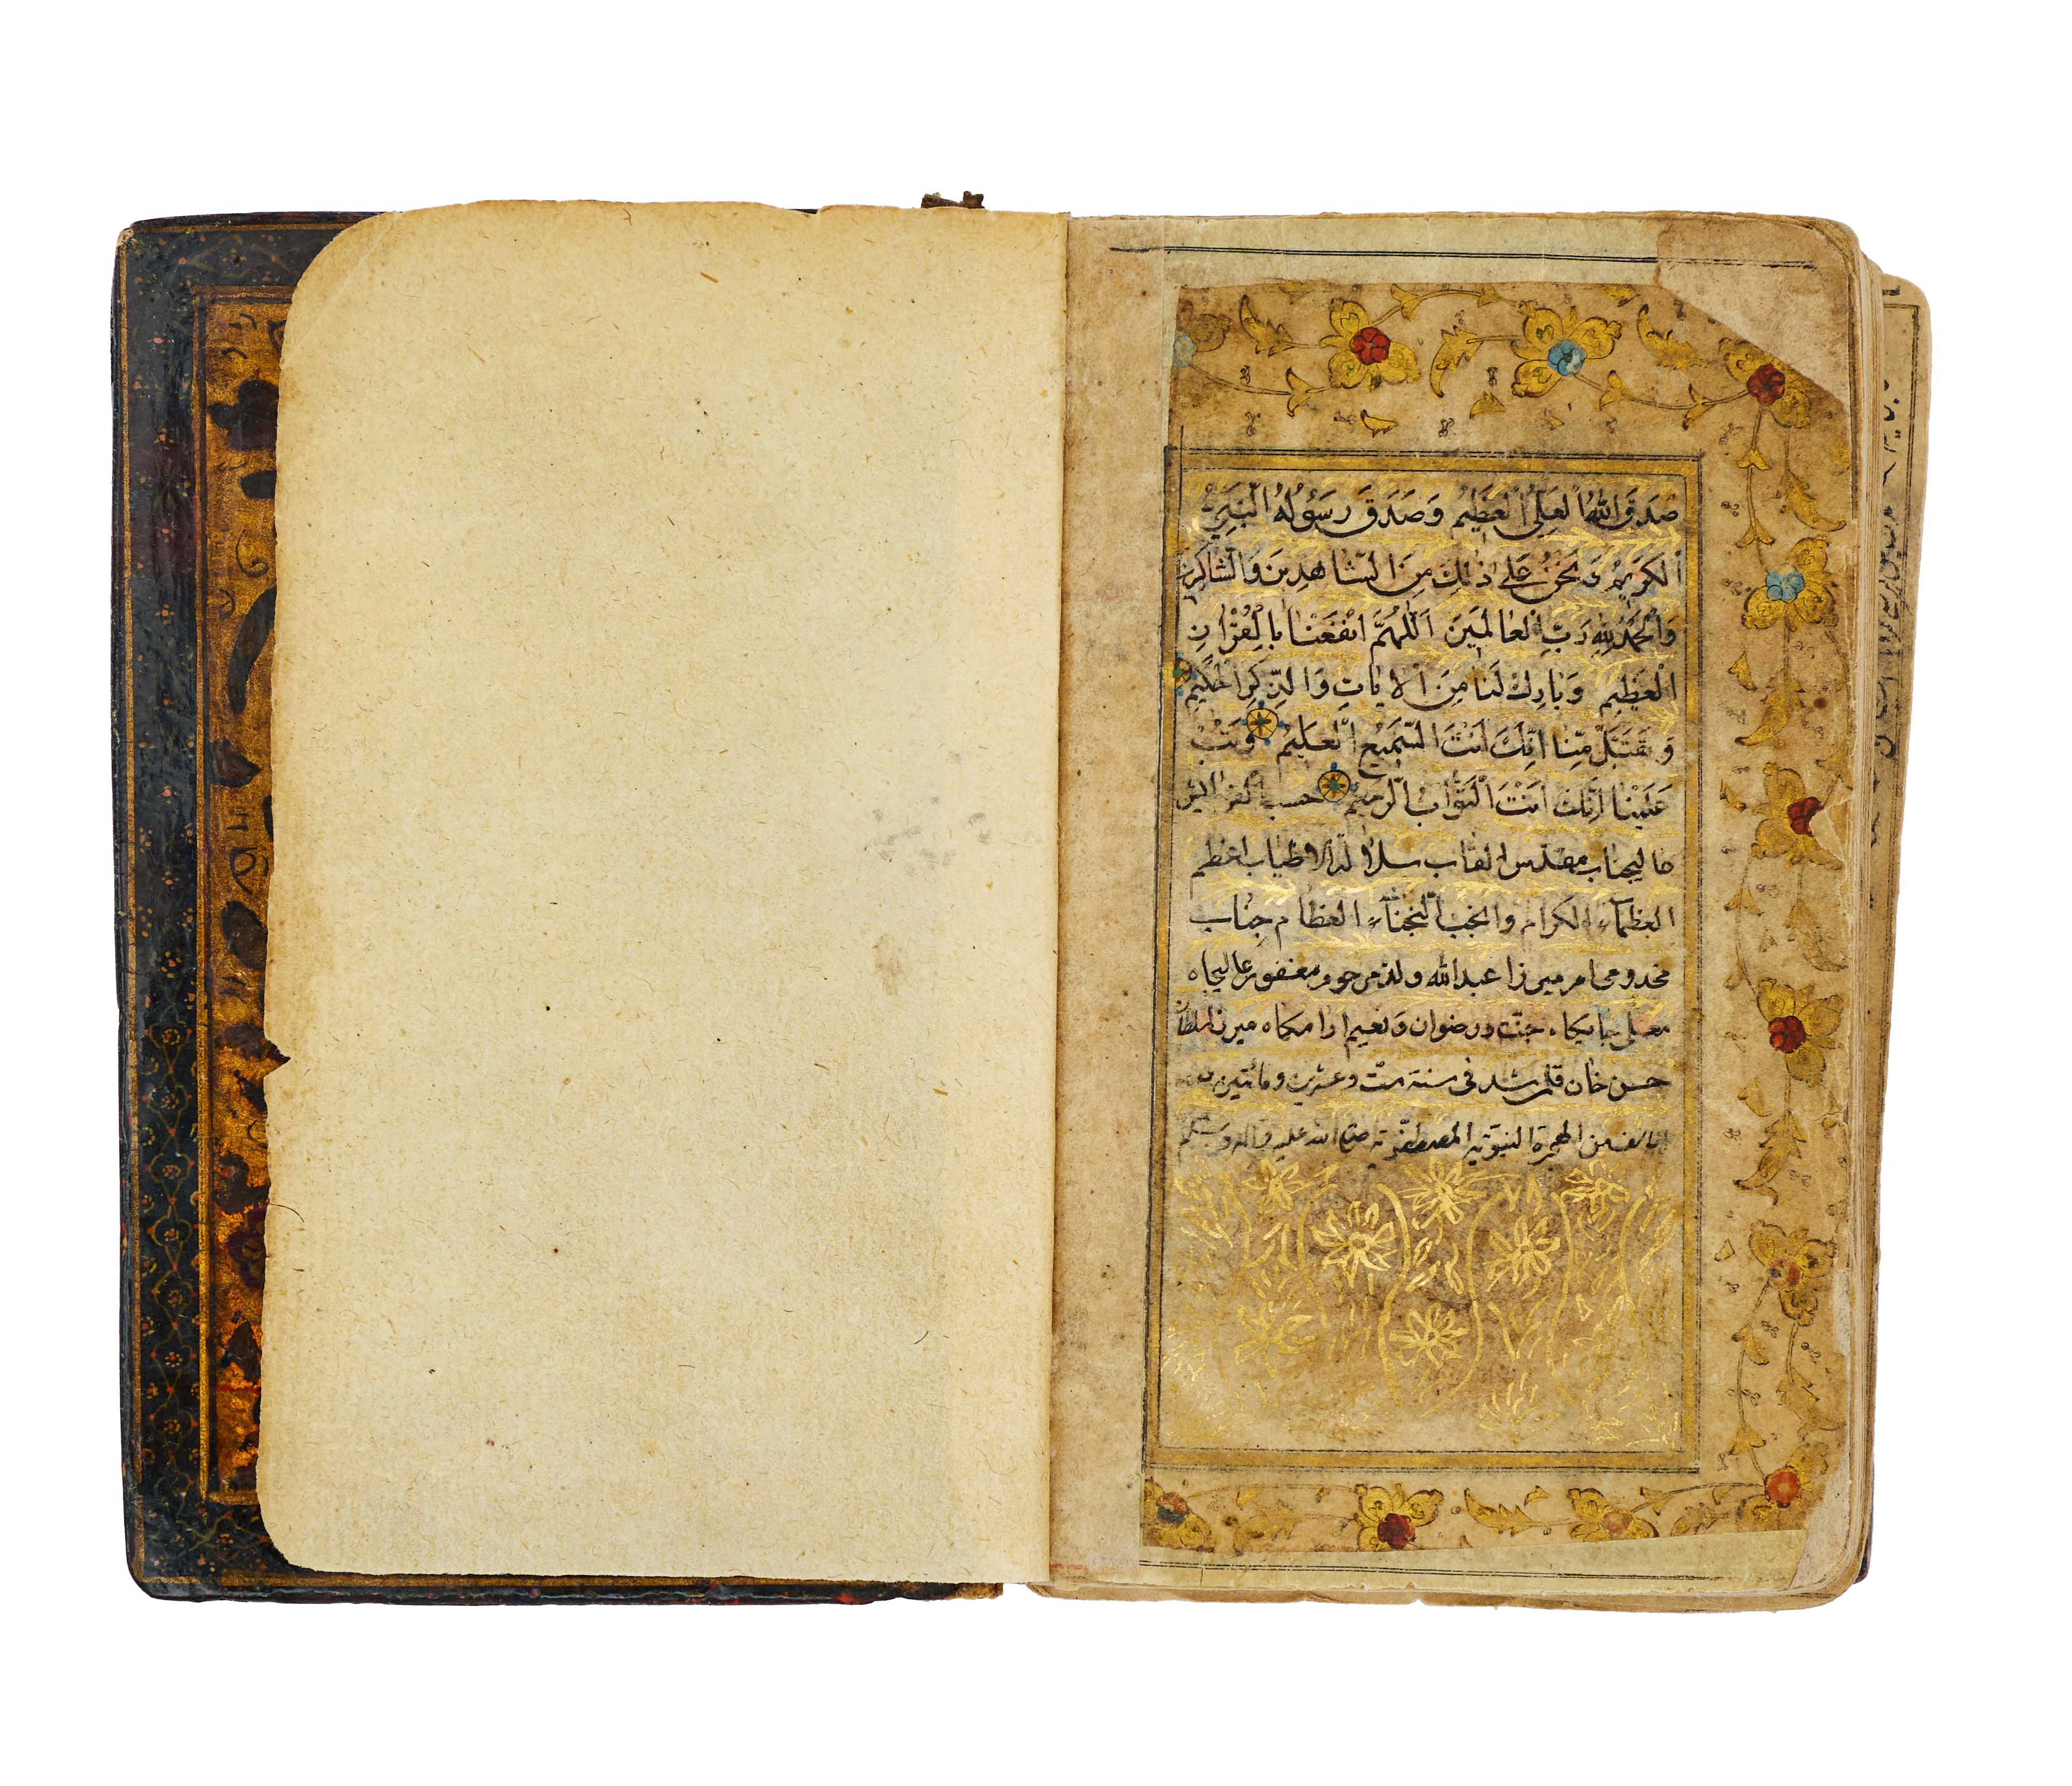 صَدَقَ اللهُ الْعَلِیُّ الْعَظِیْمُ وَصَدَقَ رَسُوْلُهُ النَّبِیُّ
اَلْکَرِیْمُ وَنَحْنُ عَلٰی ذٰلِكَ مِنَ الشَّاهِدِیْنَ وَالشَّاکِرِیْنَ
وَالْحَمْدُ لِلّٰهِ رَبِّ الْعَالَمِیْنَ اَللّٰهُمَّ انْفَعْنَا بِالْقُرْاٰنِ
الْعَظِیْمِ وَبَارِكْ لَنَا مِنَ الْاٰیَاتِ وَالذِّکْرِ الْحَکِیْمِ
وَتَقَبَّلْ مِنَّا اِنَّكَ اَنْتَ السَّمِیْعُ الْعَلِیْمُ وَتُبْ
عَلَیْنَا اِنَّكَ اَنْتَ التَّوَّابُ الرَّحِیْمُ حسب
عالیجناب مقدس القاب سلالة الاطیاب اعظم
العظمآء الکرام وانجب النجبآء العظام جناب
مخدومی ام میرزا عبدالله ولد مرحوم مغفور عالیجاه
معلی جایگاه جنت ورضوان ونعیم ارامگاه میرزا سلطان
حسن خان قلمی شد فی سنة ست وعشرین ومائتین
الف من الهجرة النبویة المصطفویة صلی الله علیه واله وسلم